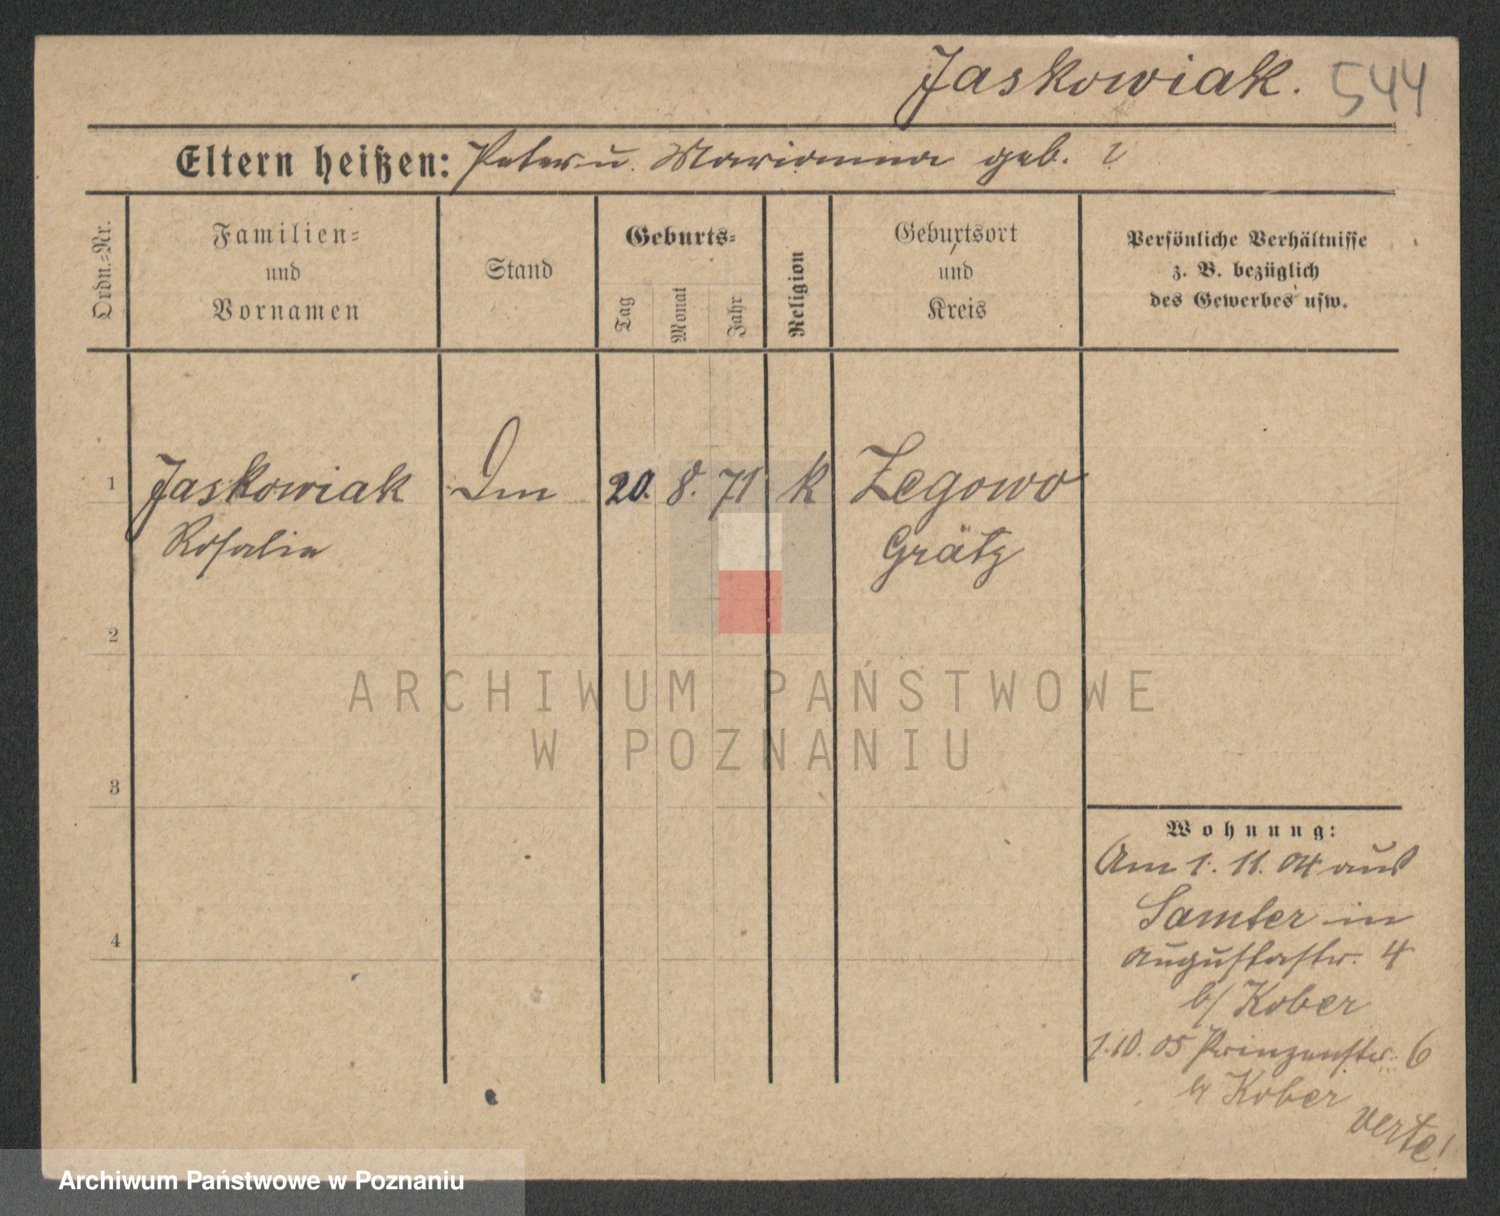 Jaskowiak. 544
Eltern heißen: Peter u. Marianna geb. ?
Ordn.-Nr.
Familien-
und
Vornamen
Stand
Geburts-
Tag
Monat
Jahr
Religion
Geburtsort
und
Kreis
Persönliche Verhältnisse
z. B. bezüglich
des Gewerbes usw.
1 Jaskowiak 20. 8. 71 k Zegowo
Rosalie Grätz
2
3
4
Wohnung:
Am 1. 11. 04 aus
Samter in
Augustastr. 4
b/ Kober
1.10. 05 Prinzenstr. 6
b/ Kober
verte!
ARCHIWUM PAŃSTWOWE
W POZNANIU
Archiwum Państwowe w Poznaniu